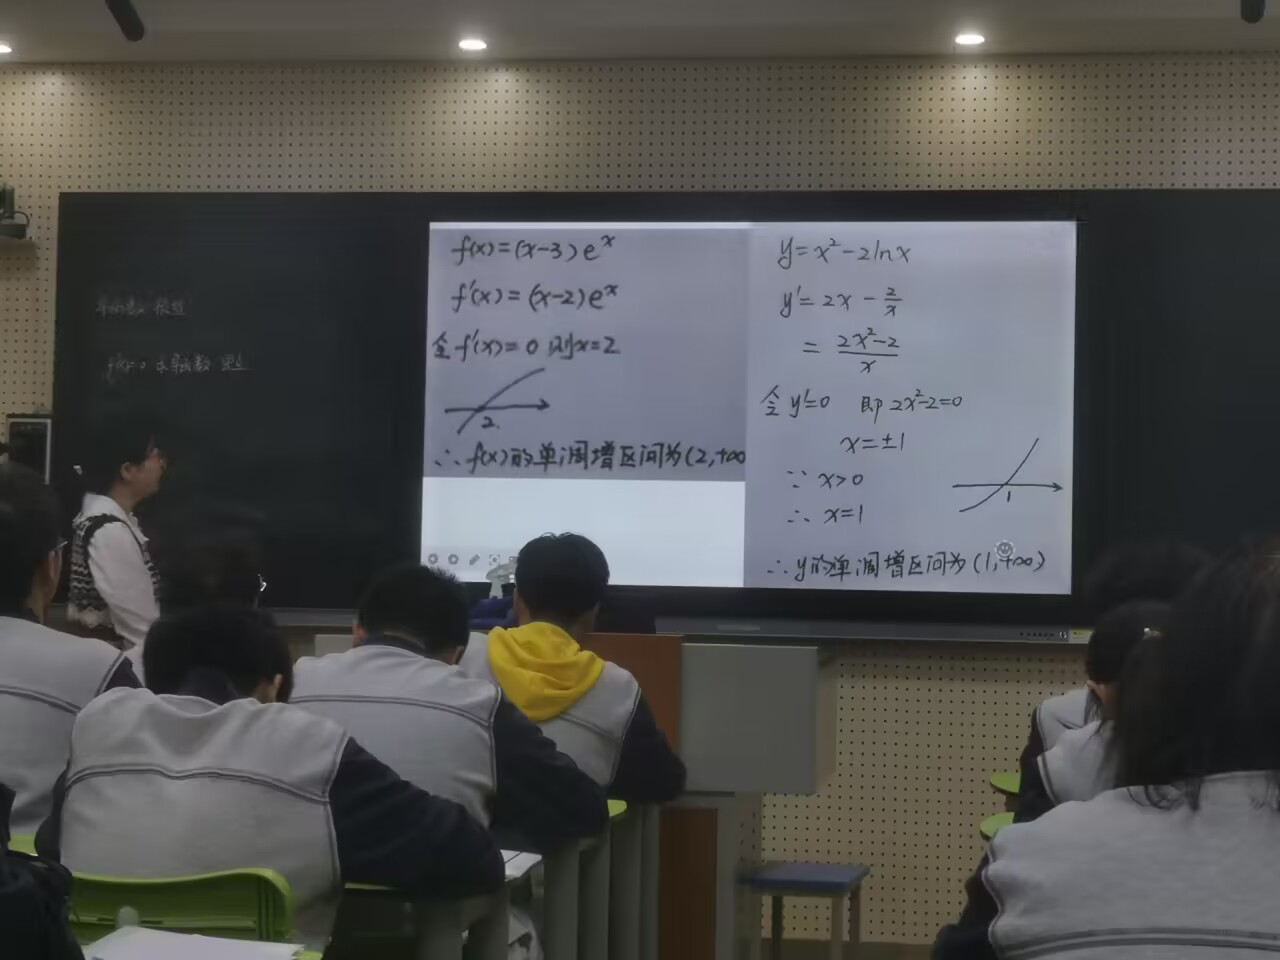 f(x)=(x-3)eˣ
f'(x)=(x-2)eˣ
令f'(x)=0 则x=2
2
∴f(x)的单调增区间为(2,+∞
y=x²-2lnx
y'=2x-2/x
=(2x²-2)/x
令y'=0 即2x²-2=0
x=±1
∵x>0
∴x=1
1
∴y的单调增区间为(1,+∞)